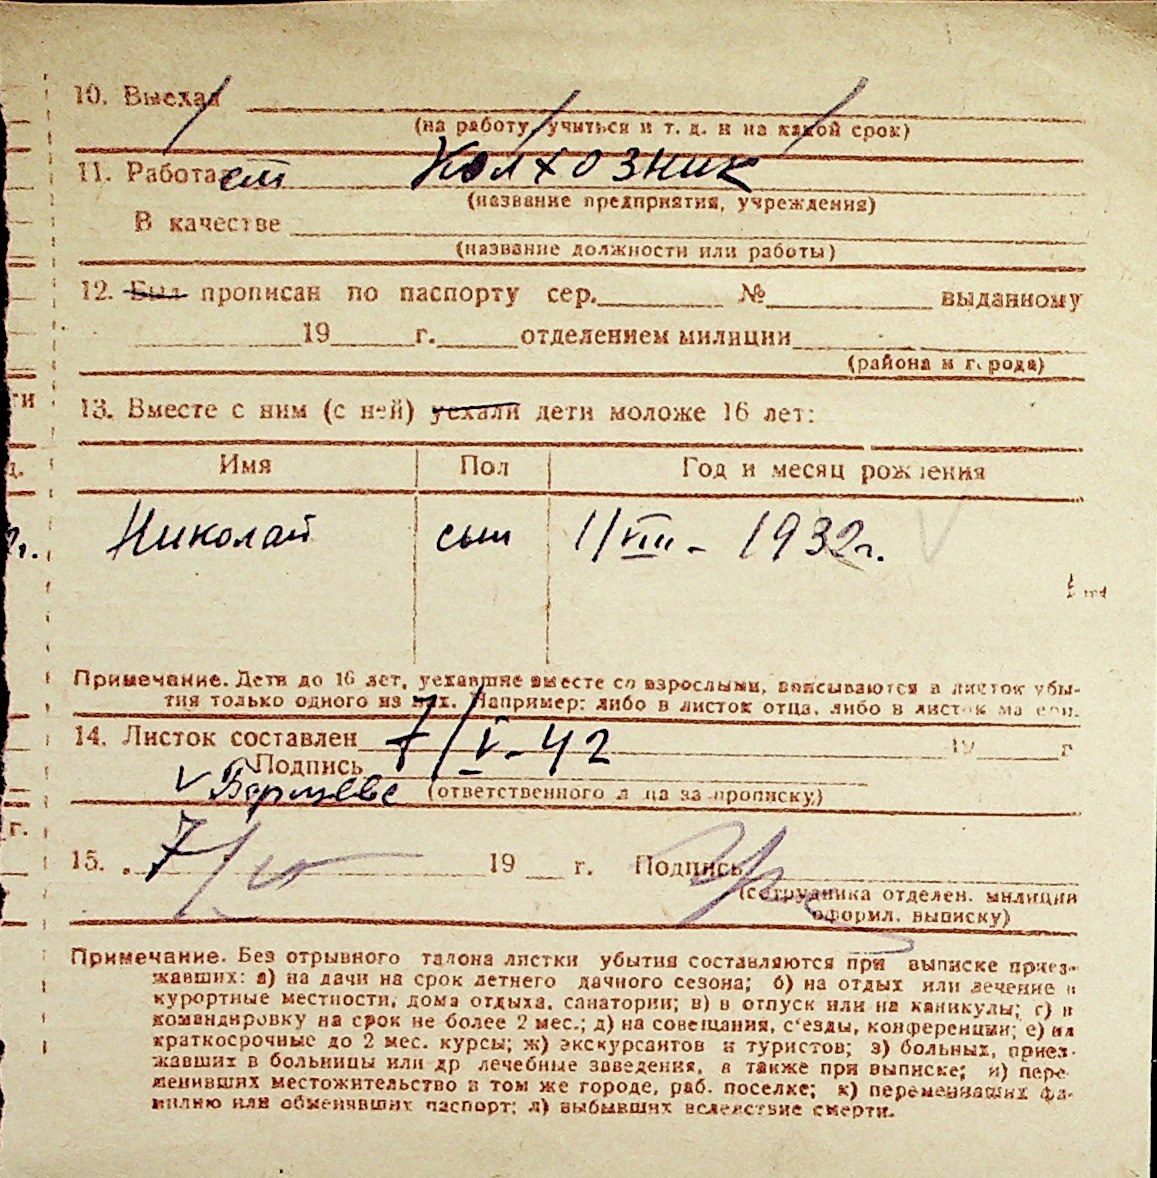 10. Выехал
(на работу, учиться и т. д. и на какой срок)
11. Работает Колхозник
(название предприятия, учреждения)
В качестве
(название должности или работы)
12. Был прописан по паспорту сер. № выданному
19 г. отделением милиции
(района и города)
13. Вместе с ним (с ней) уехали дети моложе 16 лет:
Имя Пол Год и месяц рождения
Николай сын 1/VIII - 1932г.
Примечание. Дети до 16 лет, уехавшие вместе со взрослыми, вписываются в листок убы-
тия только одного из них. Например: либо в листок отца, либо в листок матери.
14. Листок составлен 7/V-42 19 г
Подпись
(ответственного лица за прописку)
15. 7/ 19 г. Подпись
(сотрудника отделен. милиции
оформл. выписку)
Примечание. Без отрывного талона листки убытия составляются при выписке приез-
жавших: а) на дачи на срок летнего дачного сезона; б) на отдых или лечение в
курортные местности, дома отдыха, санатории; в) в отпуск или на каникулы; г) в
командировку на срок не более 2 мес.; д) на совещания, с'езды, конференции; е) на
краткосрочные до 2 мес. курсы; ж) экскурсантов и туристов; з) больных, приез-
жавших в больницы или др лечебные заведения, а также при выписке; и) пере-
менивших местожительство в том же городе, раб. поселке; к) переменивших фа-
милию или обменявших паспорт; л) выбывших вследствие смерти.